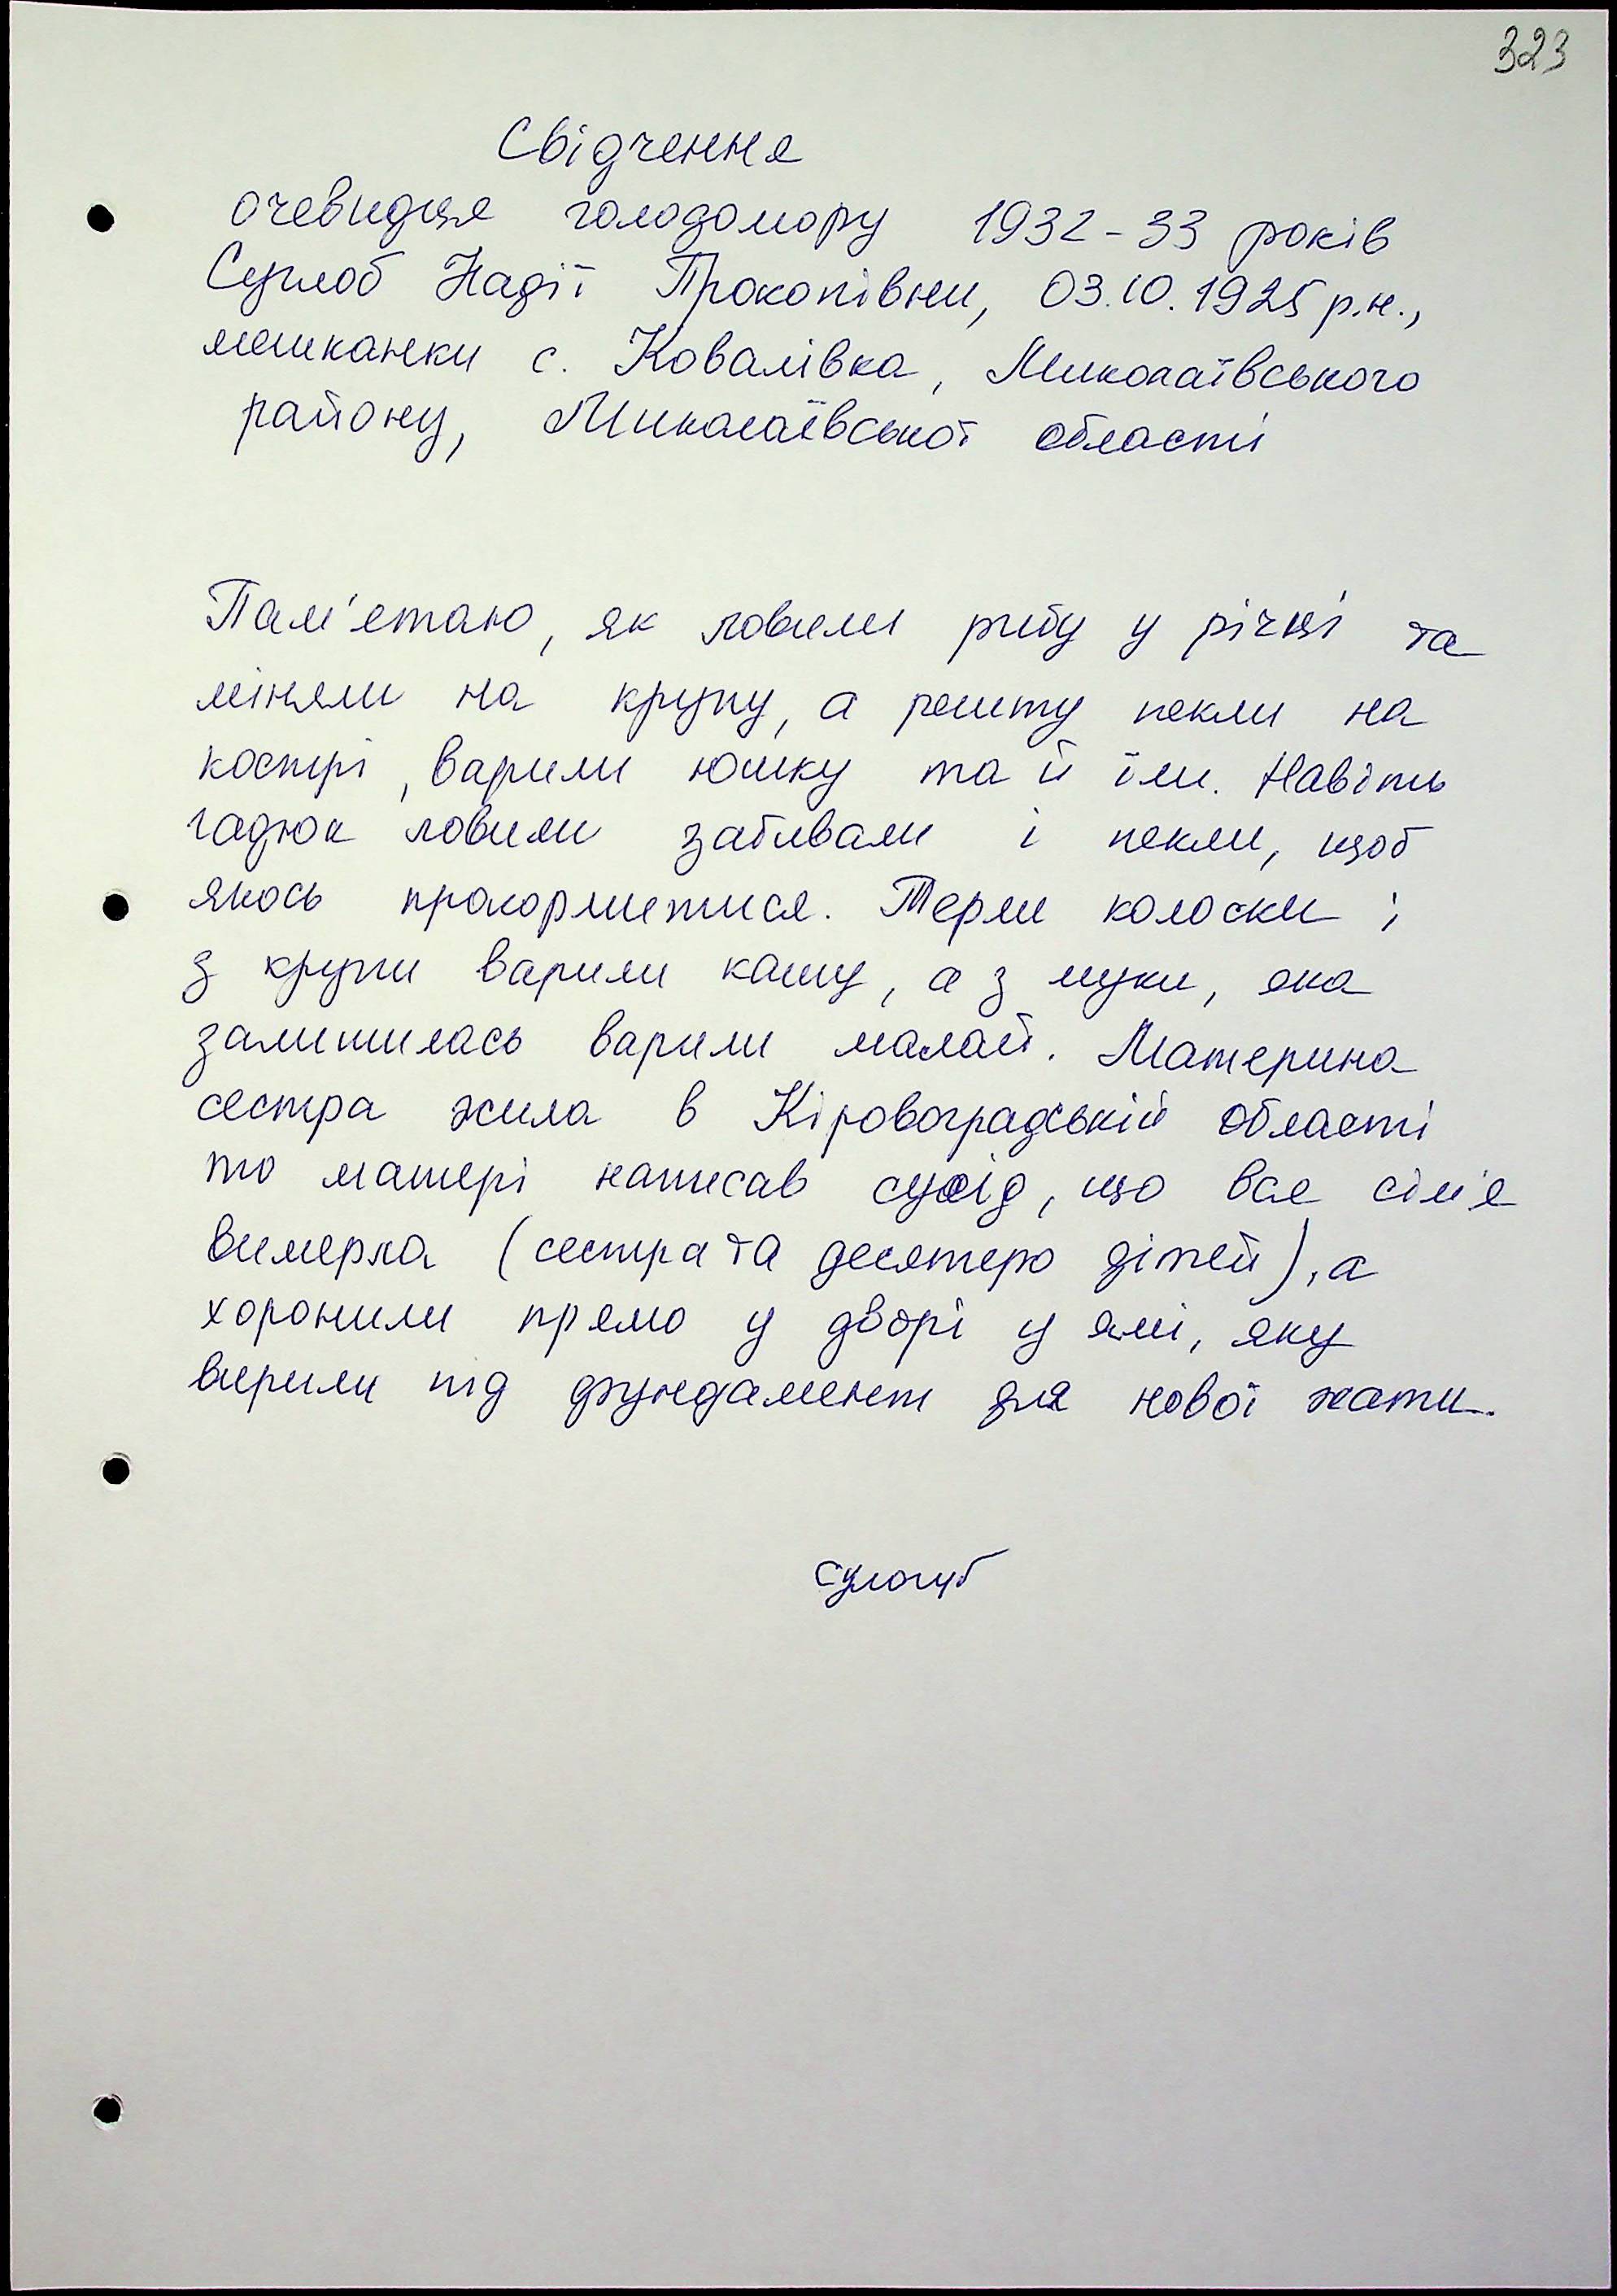 323
Свідчення
очевидця голодомору 1932-33 років
Суглоб Надії Прокопівни, 03.10.1925 р.н.,
мешканки с. Ковалівка, Миколаївського
району, Миколаївської області
Пам'ятаю, як ловили рибу у річці та
міняли на крупу, а решту пекли на
кострі, варили юшку та й їли. Навіть
гадюк ловили забивали і пекли, щоб
якось прокормитися. Терли колоски і
з крупи варили кашу, а з муки, яка
залишилась варили малай. Материна
сестра жила в Кіровоградській області
то матері написав сусід, що вся сім'я
вимерла (сестра та десятеро дітей), а
хоронили прямо у дворі у ямі, яку
вирили під фундамент для нової хати.